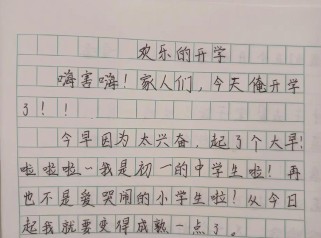 欢乐的开学
嗨害嗨！家人们，今天俺开学
了！！
今早因为太兴奋，起了个大早！
啦啦啦~我是初一的中学生啦！再
也不是爱哭闹的小学生啦！从今日
起我就要变得成熟一点了。